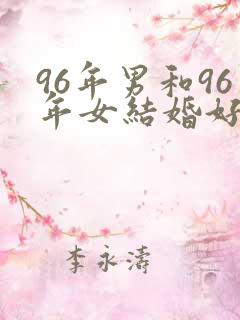 96年男和96
年女結婚好
李永濤